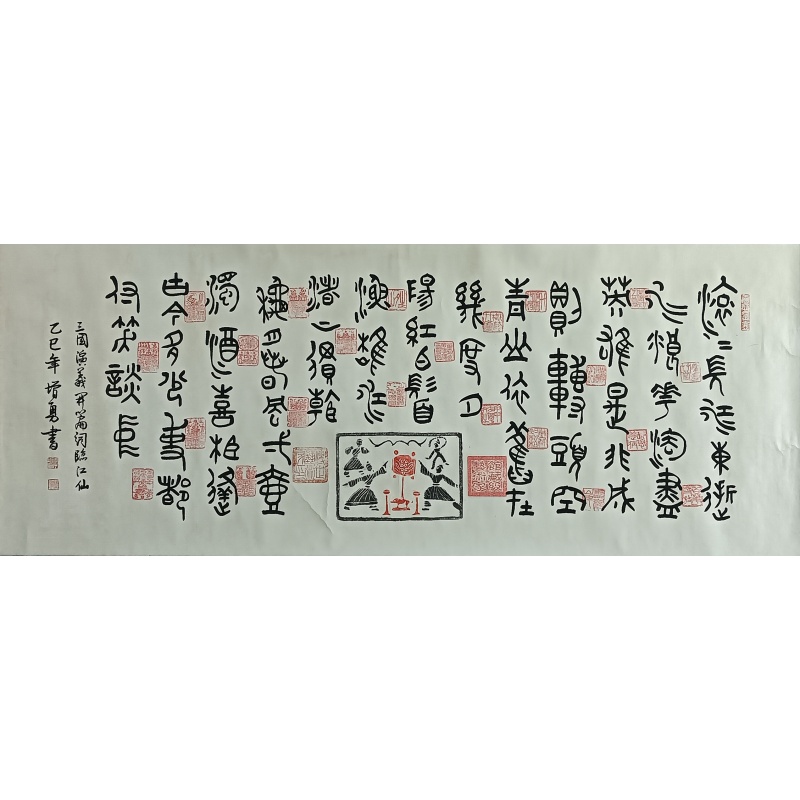 滾〻長江東逝
水浪花淘盡
英雄是非成
敗轉頭空
青山依舊在
幾度夕
陽紅白髮
漁樵江
渚上慣看
秋月春風一壺
濁酒喜相逢
古今多少事都
付笑談中
三國演義開篇詞臨江仙
乙巳年增勇書